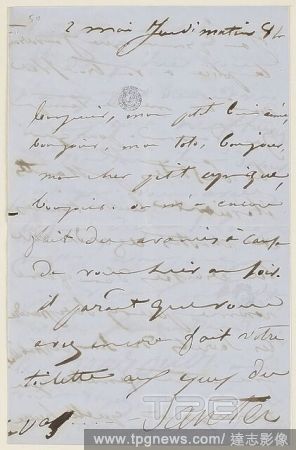 2 mai Jeudi matin 8h
bonjour, mon petit bien aimé,
bonjour, mon toto, bonjour,
mon cher petit cynique,
bonjour. on m'a encore
fait des avanies à cause
de vous hier au soir.
il paraît que vous
avez encore fait votre
toilette aux yeux du
TPG
www.tpgnews.com / 達志影像